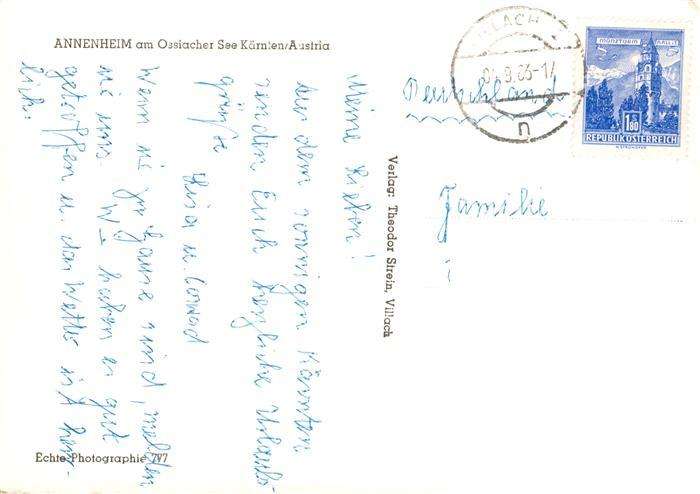 ANNENHEIM am Ossiacher See Kärnten/Austria
Meine Lieben!
Aus dem sonnigen Kärnten
senden Euch herzliche Urlaubs-
grüße
u. Conrad
Wenn wir zu Hause sind, melden
wir uns. Wir haben es gut
getroffen u. das Wetter ist herr-
lich.
Echte Photographie 797
Verlag: Theodor Strein, Villach
VILLACH
n
MÜNZTURM HALL i.T.
S 1.80
REPUBLIK ÖSTERREICH
Deutschland
Familie